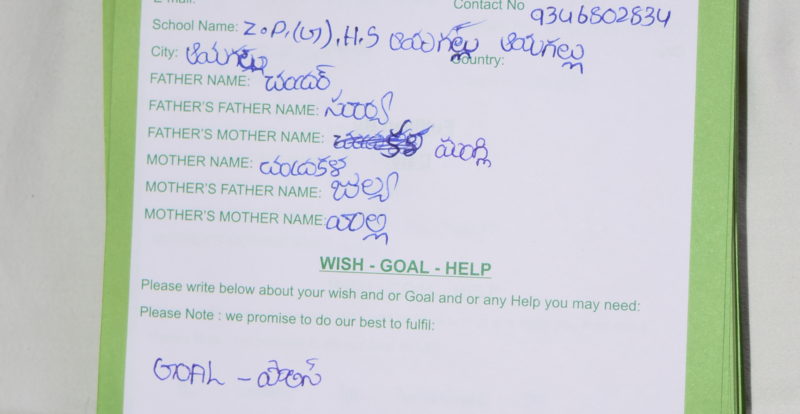 E-mail: Contact No 9346802834
School Name: Z.P.(ప్రా).H.S ఆయగల్లు ఆయగల్లు
City: ఆయగల్లు Country:
FATHER NAME: చందర్
FATHER'S FATHER NAME: సుర్య
FATHER'S MOTHER NAME: మంగ్లి
MOTHER NAME: చంద్రకళ
MOTHER'S FATHER NAME:
MOTHER'S MOTHER NAME:
WISH - GOAL - HELP
Please write below about your wish and or Goal and or any Help you may need:
Please Note : we promise to do our best to fulfil:
GOAL - పోలీస్